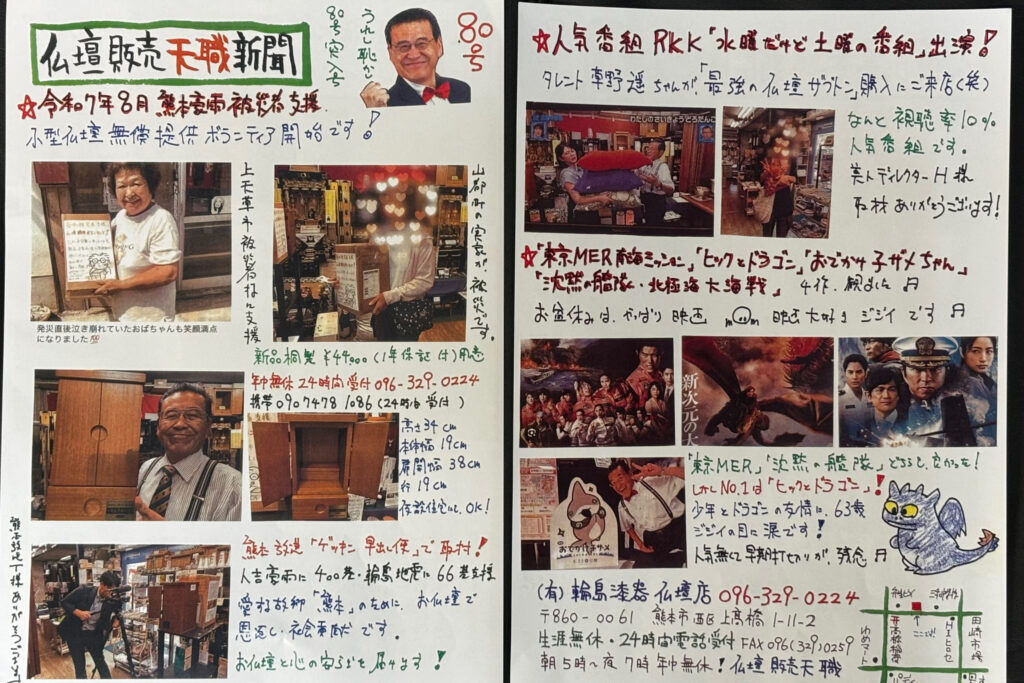 仏壇販売天職新聞
80号突入
うれし恥かし
80号
☆令和7年8月 熊本豪雨被災者支援
小型仏壇無償提供ボランティア開始です!
上天草市被災者様に支援
山都町の実家が被災です。
発災直後泣き崩れていたおばちゃんも笑顔満点
になりました💯
新品桐製 ¥44000(1年保証付)用意
年中無休24時間受付 096-329-0224
携帯 090 7478 1086 (24時間受付)
高さ34cm
本体幅19cm
扉開幅38cm
行19cm
仮設住宅にも、OK!
熊本放送「ゲツキン早出し便」で取材!
人吉豪雨に400基・輪島地震に66基支援
愛する故郷「熊本」のために、お仏壇で
恩返し・社会奉仕です。
お仏壇と心の安らぎを届けます!
ありがとうございます!
☆人気番組RKK「水曜だけど土曜の番組」出演!
タレント草野遥ちゃんが「最強の仏壇ザブトン」購入にご来店(笑)
わたしのさいきょうどろだんご
なんと視聴率10%
人気番組です。
美人ディレクターH様
取材ありがとうございます!
☆「東京MER南海ミッション」「ヒックとドラゴン」「おでかけ子ザメちゃん」
「沈黙の艦隊・北極海大海戦」4作、観ました♫
お盆休みは、やっぱり映画 映画大好きジジイです♫
新次元の大
おでかけ子ザメ
「東京MER」「沈黙の艦隊」どちらも、良かった!
しかしNo.1は「ヒックとドラゴン」!
少年とドラゴンの友情に、63歳
ジジイの目に涙です!
人気無くて早期打セリが、残念♫
(有)輪島漆器仏壇店 096-329-0224
〒860-0061 熊本市西区上高橋1-11-2
生涯無休・24時間電話受付 FAX 096(329)0259
朝5時~夜7時 年中無休! 仏壇販売天職
ここだよ!
田崎市場
高橋稲荷
ゆめマート